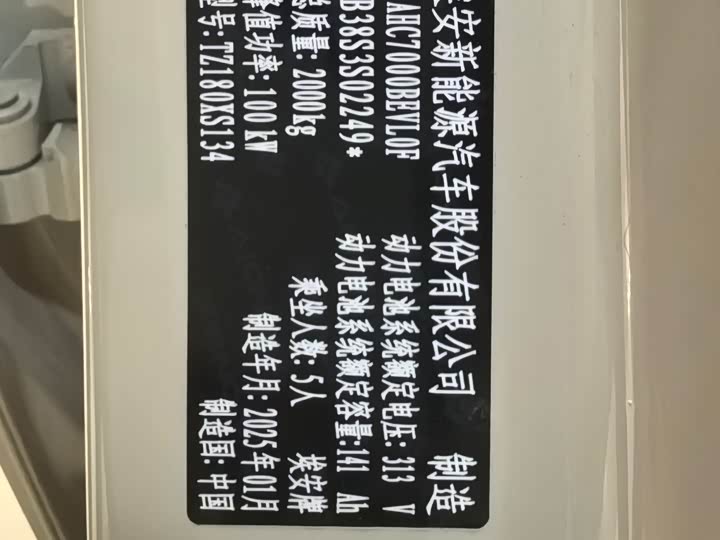 安新能源汽车股份有限公司 制造
AHC7000BEVL0F 动力电池系统额定电压: 313 V
B38S3S02249* 动力电池系统额定容量:141 Ah
总质量: 2000kg 乘坐人数: 5人 埃安牌
峰值功率: 100 kW 制造年月: 2025年01月
型号: TZ180XS134 制造国: 中国